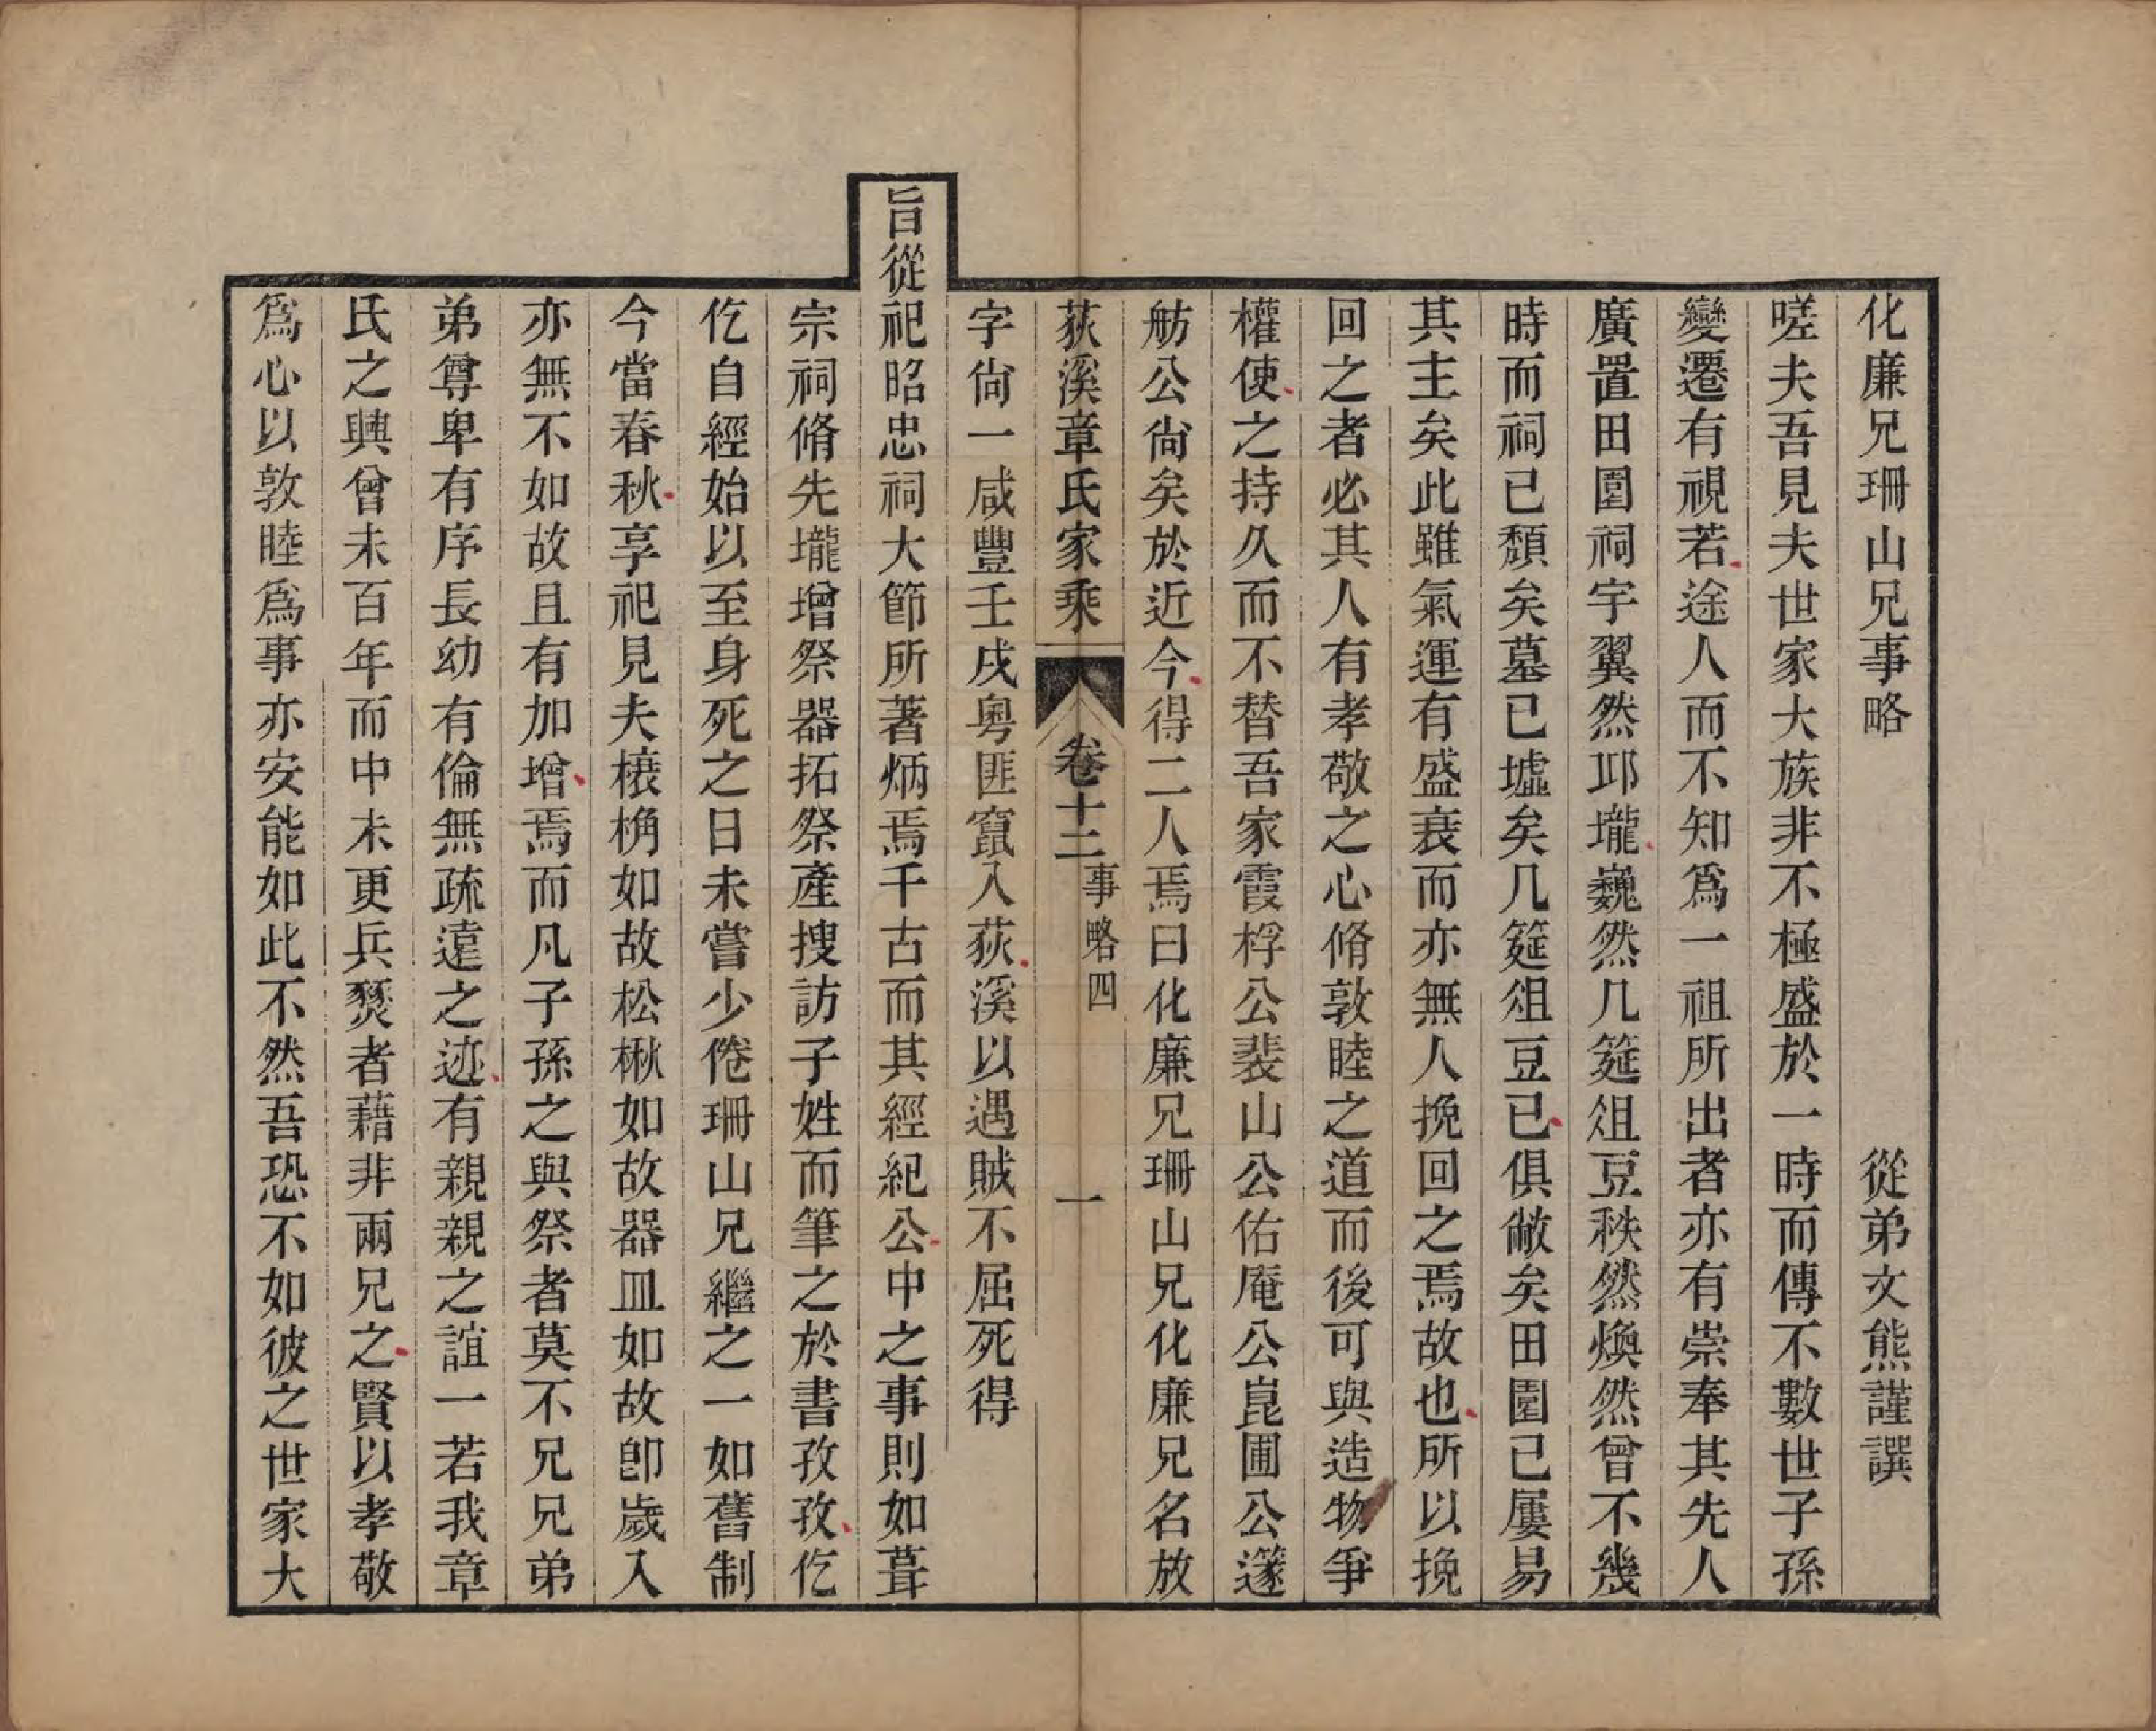 化廉兄珊山兄事略　從弟文熊謹譔
嗟夫吾見夫世家大族非不極盛於一時而傳不數世子孫
變遷有視若途人而不知爲一祖所出者亦有崇奉其先人
廣置田園祠宇翼然邱壠巍然几筵俎豆秩然煥然曾不幾
時而祠已頽矣墓已墟矣几筵俎豆已俱敝矣田園已屢易
其主矣此雖氣運有盛衰而亦無人挽回之焉故也所以挽
回之者必其人有孝敬之心脩敦睦之道而後可與造物爭
權使之持久而不替吾家霞桴公裴山公佑庵公崑圃公蓬
舫公尙矣於近今得二人焉曰化廉兄珊山兄化廉兄名放
荻溪章氏家乘　卷十二　事略四　一
字尙一咸豐壬戌粤匪竄入荻溪以遇賊不屈死得
旨從祀昭忠祠大節所著炳焉千古而其經紀公中之事則如葺
宗祠脩先壠增祭器拓祭產搜訪子姓而筆之於書孜孜仡
仡自經始以至身死之日未嘗少倦珊山兄繼之一如舊制
今當春秋享祀見夫榱桷如故松楸如故器皿如故卽歲入
亦無不如故且有加增焉而凡子孫之與祭者莫不兄兄弟
弟尊卑有序長幼有倫無疏遠之迹有親親之誼一若我章
氏之興曾未百年而中未更兵燹者藉非兩兄之賢以孝敬
爲心以敦睦爲事亦安能如此不然吾恐不如彼之世家大